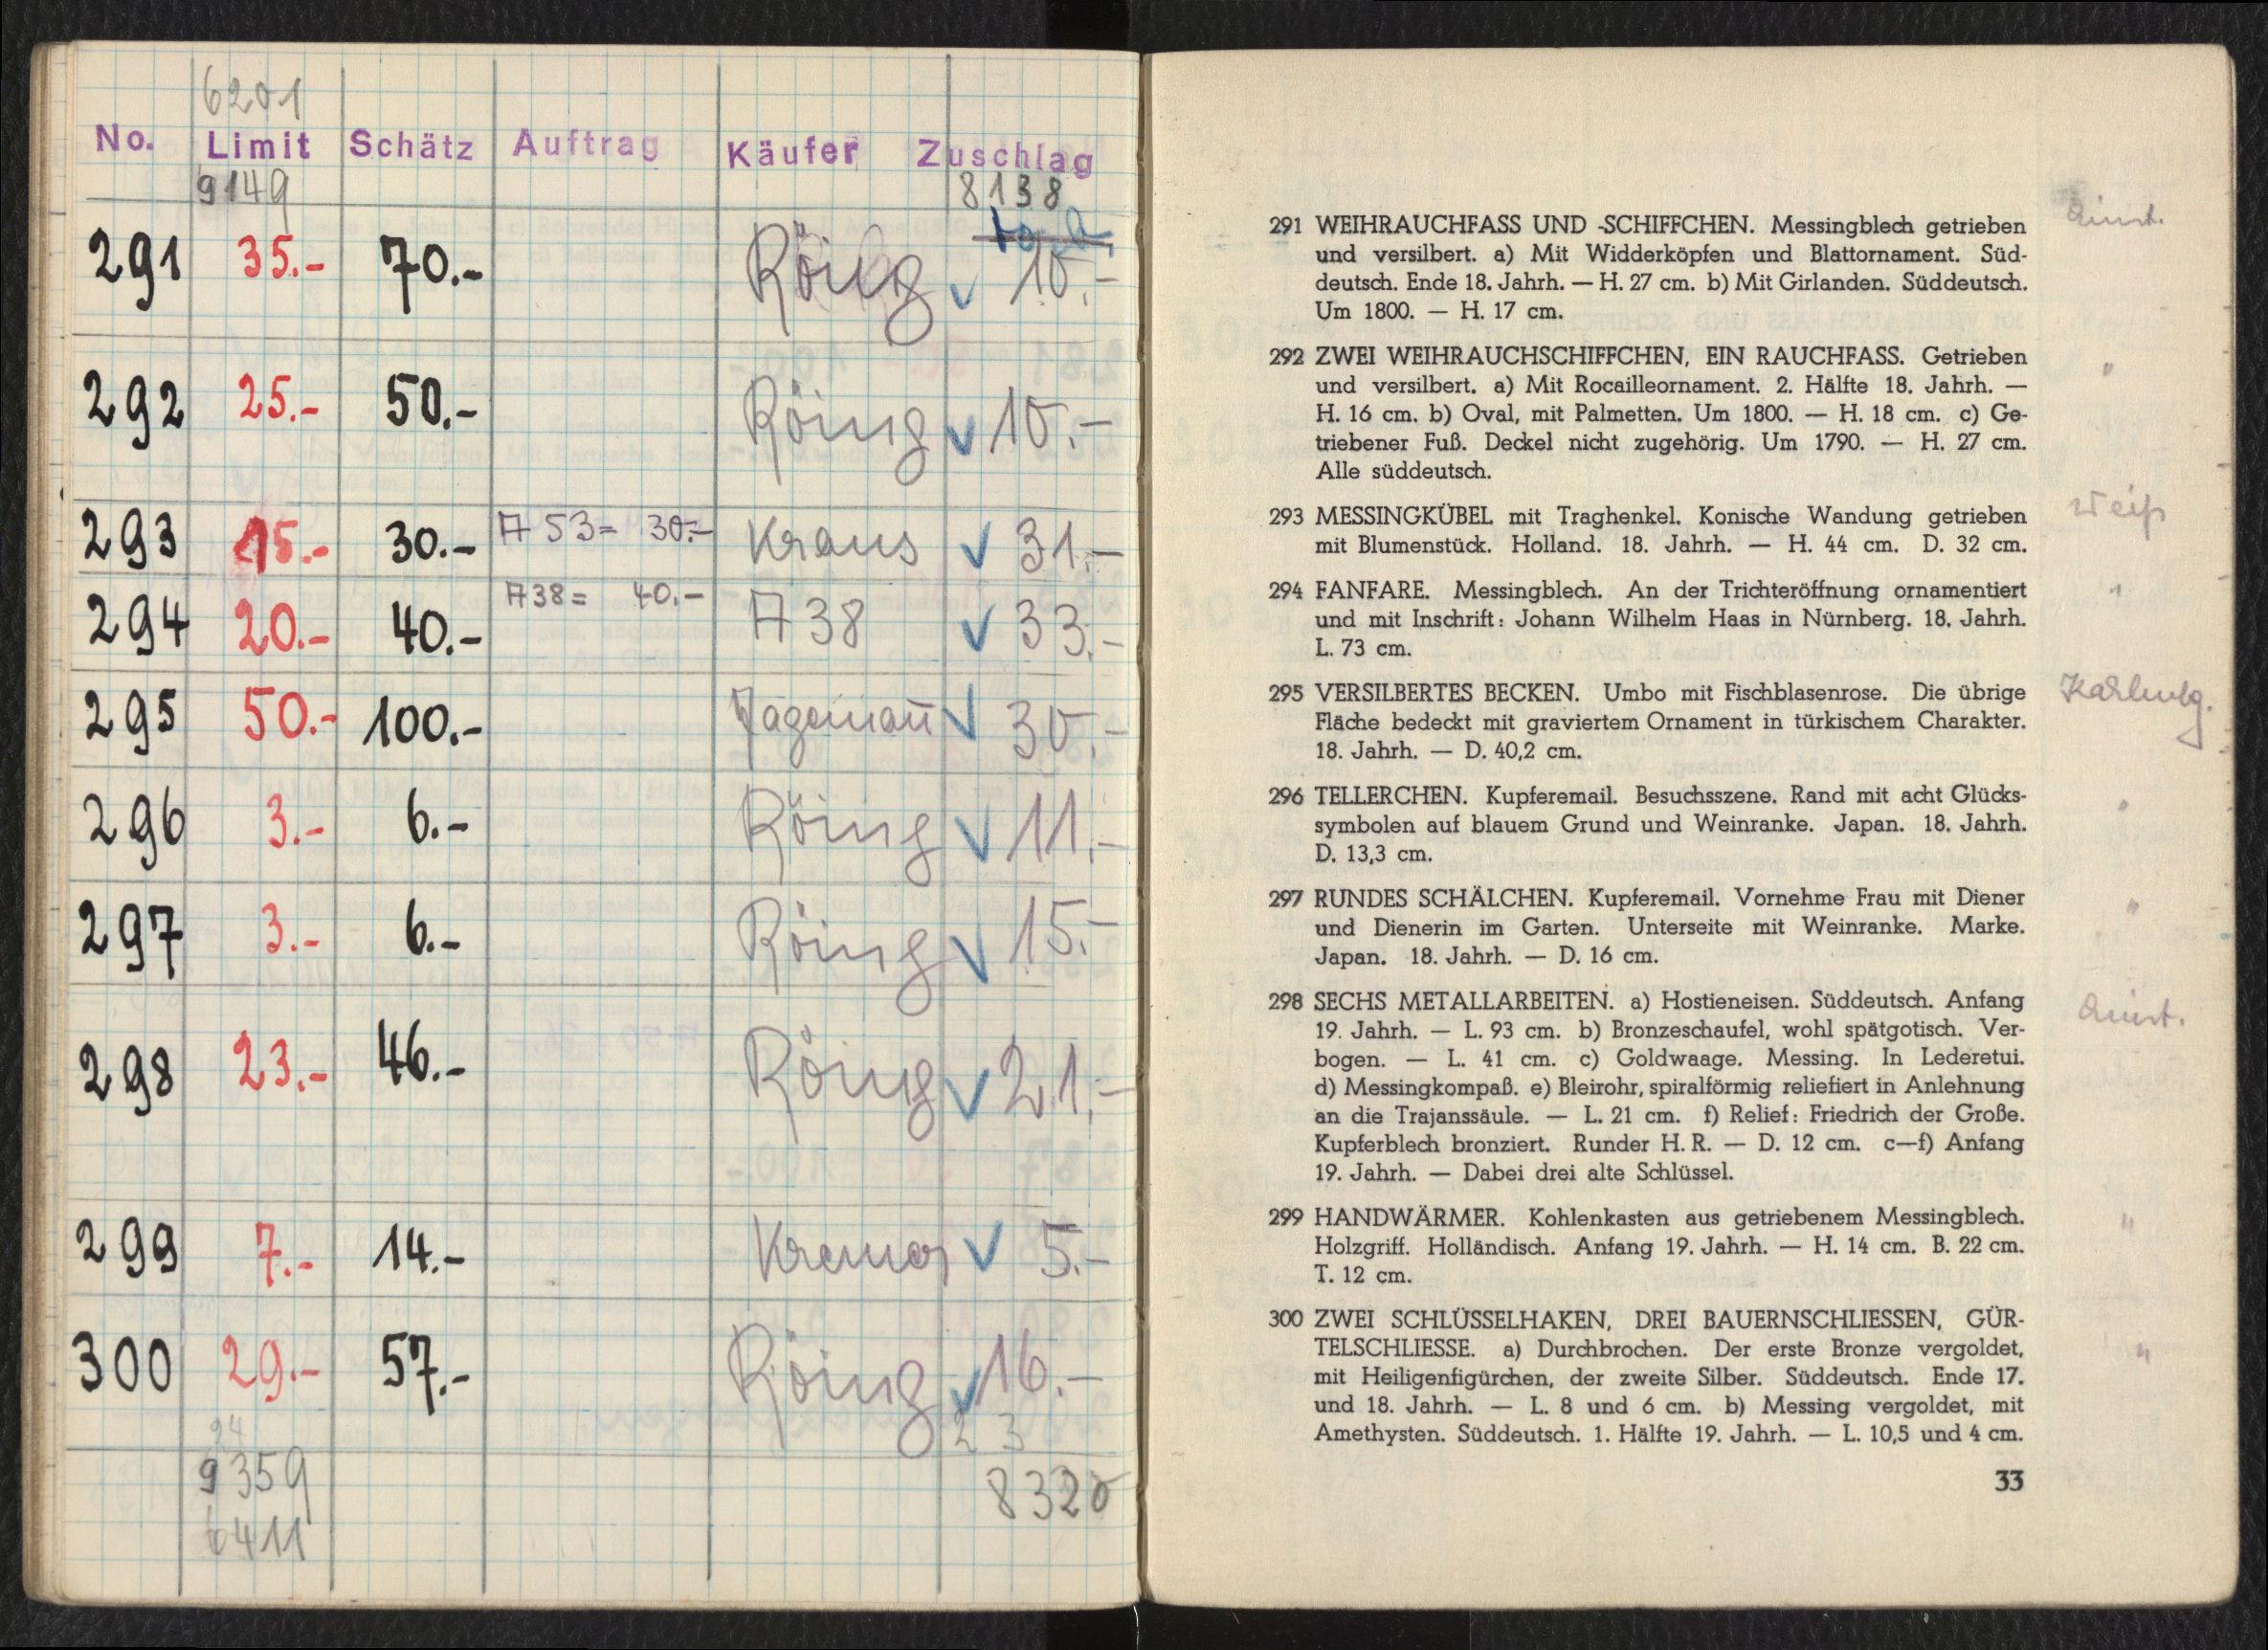 6201
No. Limit Schätz Auftrag Käufer Zuschlag
9149 8138
291 35.- 70.- Röing 10.-
292 25.- 50.- Röing 10.-
293 15.- 30.- A 53= 30.- Kraus 31.-
294 20.- 40.- A 38= 40.- A 38 33.-
295 50.- 100.- Jagemañ 30.-
296 3.- 6.- Röing 11.-
297 3.- 6.- Röing 15.-
298 23.- 46.- Röing 21.-
299 7.- 14.- 5.-
300 29.- 57.- Röing 16.-
9359 8320
6411
291 WEIHRAUCHFASS UND -SCHIFFCHEN. Messingblech getrieben
und versilbert. a) Mit Widderköpfen und Blattornament. Süd-
deutsch. Ende 18. Jahrh. — H. 27 cm. b) Mit Girlanden. Süddeutsch.
Um 1800. — H. 17 cm.
292 ZWEI WEIHRAUCHSCHIFFCHEN, EIN RAUCHFASS. Getrieben "
und versilbert. a) Mit Rocailleornament. 2. Hälfte 18. Jahrh. —
H. 16 cm. b) Oval, mit Palmetten. Um 1800. — H. 18 cm. c) Ge-
triebener Fuß. Deckel nicht zugehörig. Um 1790. — H. 27 cm.
Alle süddeutsch.
293 MESSINGKÜBEL mit Traghenkel. Konische Wandung getrieben Weiß
mit Blumenstück. Holland. 18. Jahrh. — H. 44 cm. D. 32 cm.
294 FANFARE. Messingblech. An der Trichteröffnung ornamentiert "
und mit Inschrift: Johann Wilhelm Haas in Nürnberg. 18. Jahrh.
L. 73 cm.
295 VERSILBERTES BECKEN. Umbo mit Fischblasenrose. Die übrige
Fläche bedeckt mit graviertem Ornament in türkischem Charakter.
18. Jahrh. — D. 40,2 cm.
296 TELLERCHEN. Kupferemail. Besuchsszene. Rand mit acht Glücks- "
symbolen auf blauem Grund und Weinranke. Japan. 18. Jahrh.
D. 13,3 cm.
297 RUNDES SCHÄLCHEN. Kupferemail. Vornehme Frau mit Diener "
und Dienerin im Garten. Unterseite mit Weinranke. Marke.
Japan. 18. Jahrh. — D. 16 cm.
298 SECHS METALLARBEITEN. a) Hostieneisen. Süddeutsch. Anfang
19. Jahrh. — L. 93 cm. b) Bronzeschaufel, wohl spätgotisch. Ver-
bogen. — L. 41 cm. c) Goldwaage. Messing. In Lederetui.
d) Messingkompaß. e) Bleirohr, spiralförmig reliefiert in Anlehnung
an die Trajanssäule. — L. 21 cm. f) Relief: Friedrich der Große.
Kupferblech bronziert. Runder H. R. — D. 12 cm. c—f) Anfang
19. Jahrh. — Dabei drei alte Schlüssel.
299 HANDWÄRMER. Kohlenkasten aus getriebenem Messingblech. "
Holzgriff. Holländisch. Anfang 19. Jahrh. — H. 14 cm. B. 22 cm.
T. 12 cm.
300 ZWEI SCHLÜSSELHAKEN, DREI BAUERNSCHLIESSEN, GÜR-
TELSCHLIESSE. a) Durchbrochen. Der erste Bronze vergoldet, "
mit Heiligenfigürchen, der zweite Silber. Süddeutsch. Ende 17.
und 18. Jahrh. — L. 8 und 6 cm. b) Messing vergoldet, mit
Amethysten. Süddeutsch. 1. Hälfte 19. Jahrh. — L. 10,5 und 4 cm.
33